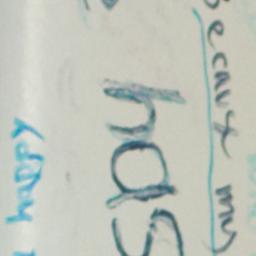 Because my
has
happy